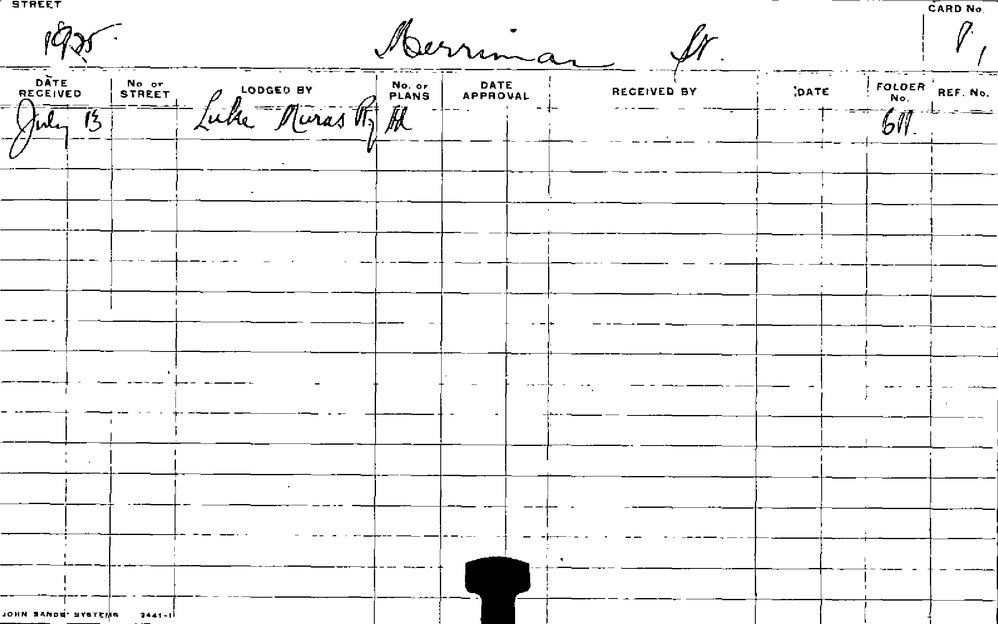 STREET
CARD No.
1925. Merriman St.
DATE RECEIVED No of STREET LODGED BY No. of PLANS DATE APPROVAL RECEIVED BY DATE FOLDER No. REF. No.
July 13 Luke Muras Pty
JOHN SANDS' SYSTEMS 2441-1